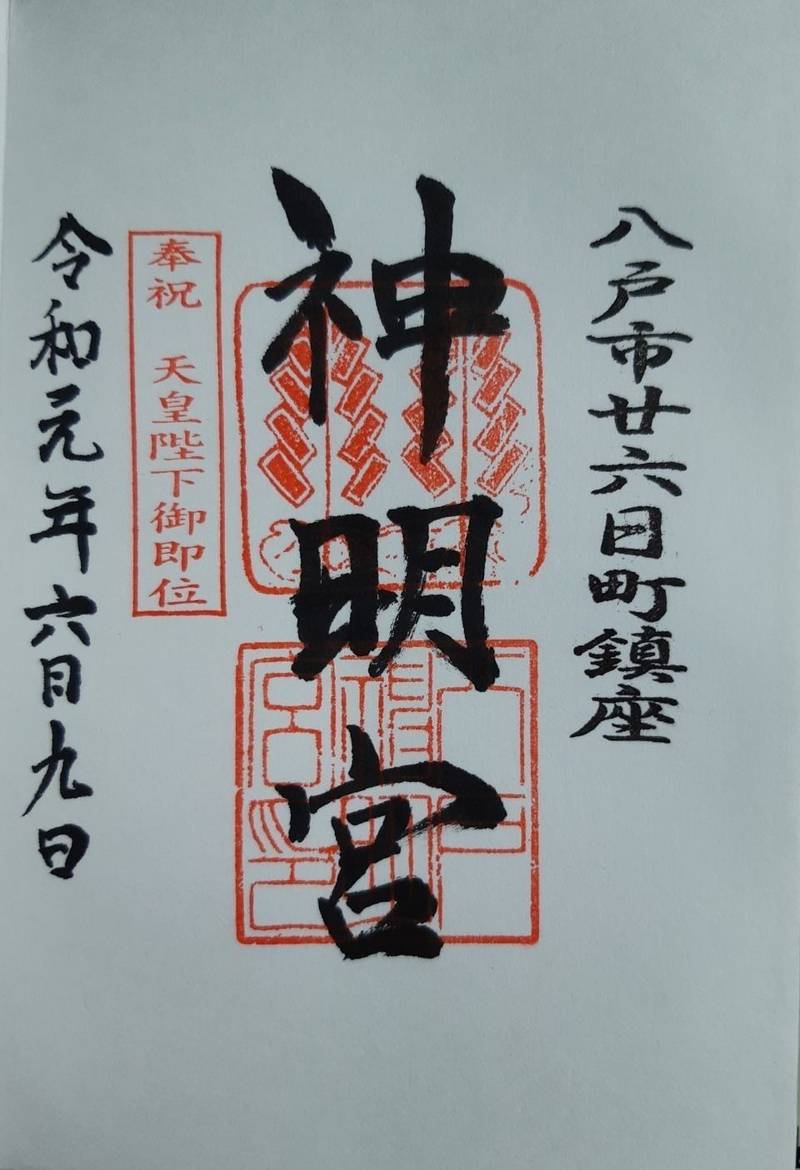 八戸市廿六日町鎮座
神明宮
奉祝 天皇陛下御即位
令和元年六月九日